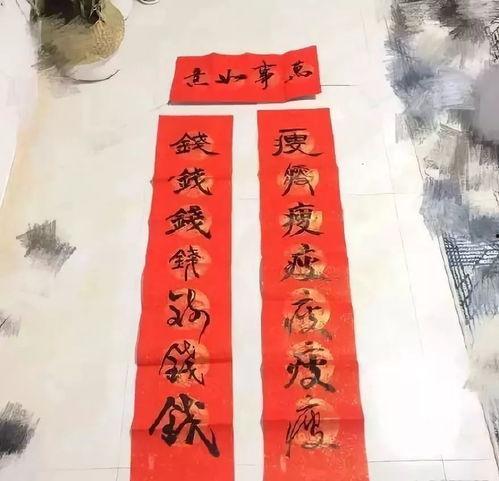 萬事如意
瘦瘦瘦瘦瘦瘦瘦
錢錢錢錢錢錢錢